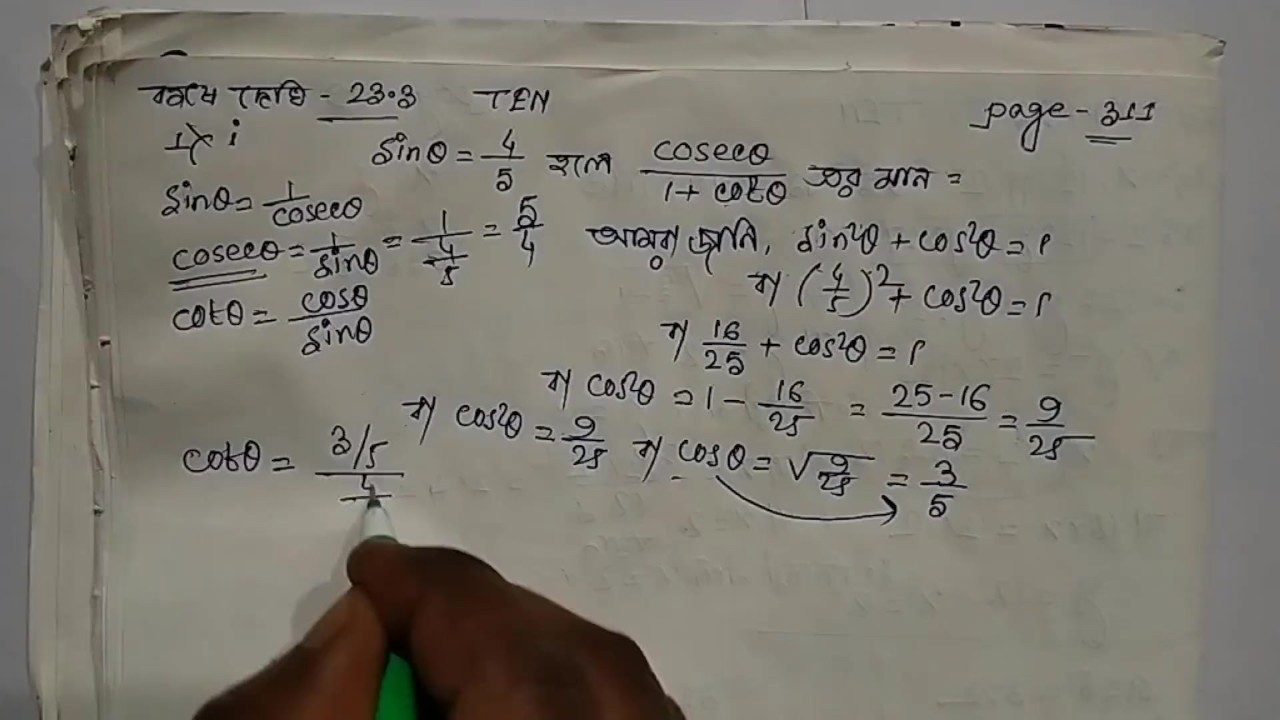 কষে দেখি - 23.3 TEN page - 311
1) i sinθ = 4/5 হলে cosecθ/(1 + cotθ) এর মান =
sinθ = 1/cosecθ
cosecθ = 1/sinθ = 1/(4/5) = 5/4
cotθ = cosθ/sinθ
আমরা জানি, sin²θ + cos²θ = 1
বা (4/5)² + cos²θ = 1
বা 16/25 + cos²θ = 1
বা cos²θ = 1 - 16/25 = (25-16)/25 = 9/25
বা cos²θ = 9/25 বা cosθ = √(9/25) = 3/5
cotθ = (3/5)/4